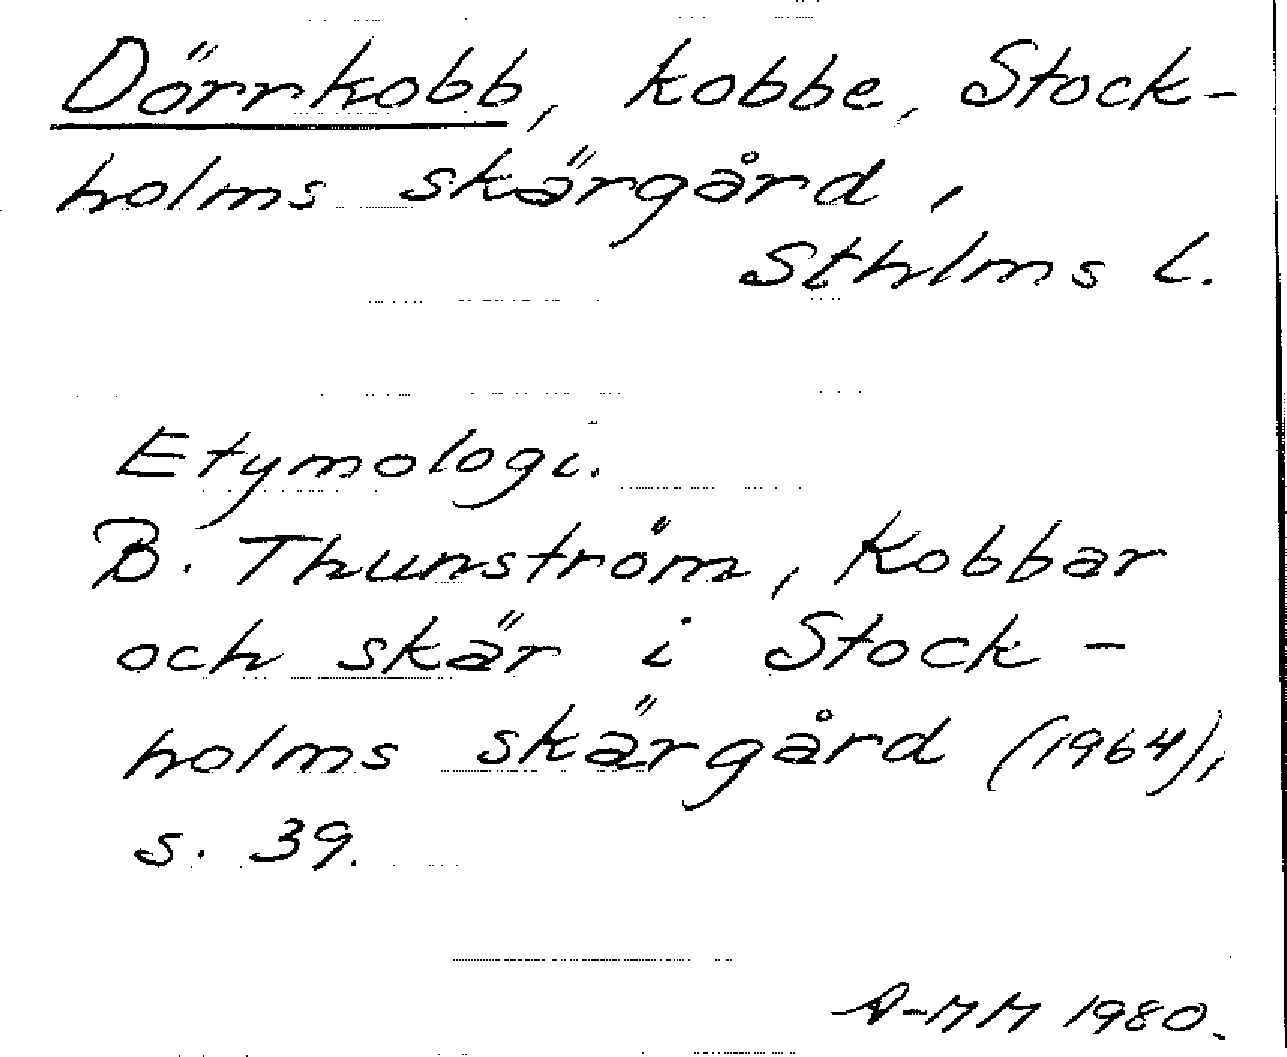 Dörrkobb, kobbe, Stock-
holms skärgård,
Sthlms l.
Etymologi.
B. Thunström, Kobbar
och skär i Stock-
holms skärgård (1964),
s. 39.
A-MM 1980.